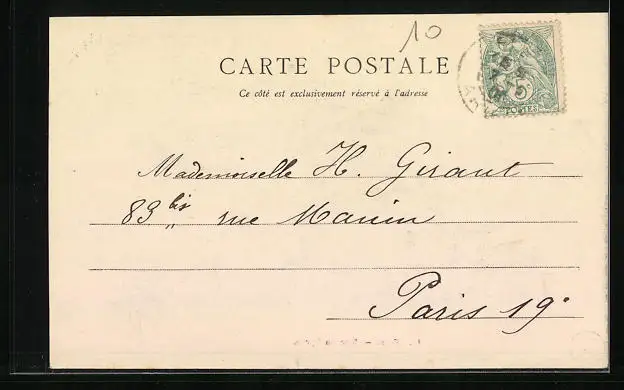 10
CARTE POSTALE
Ce côté est exclusivement réservé à l'adresse
5c
POSTES
Mademoiselle H. Giraut
83 bis rue Manin
Paris 19e